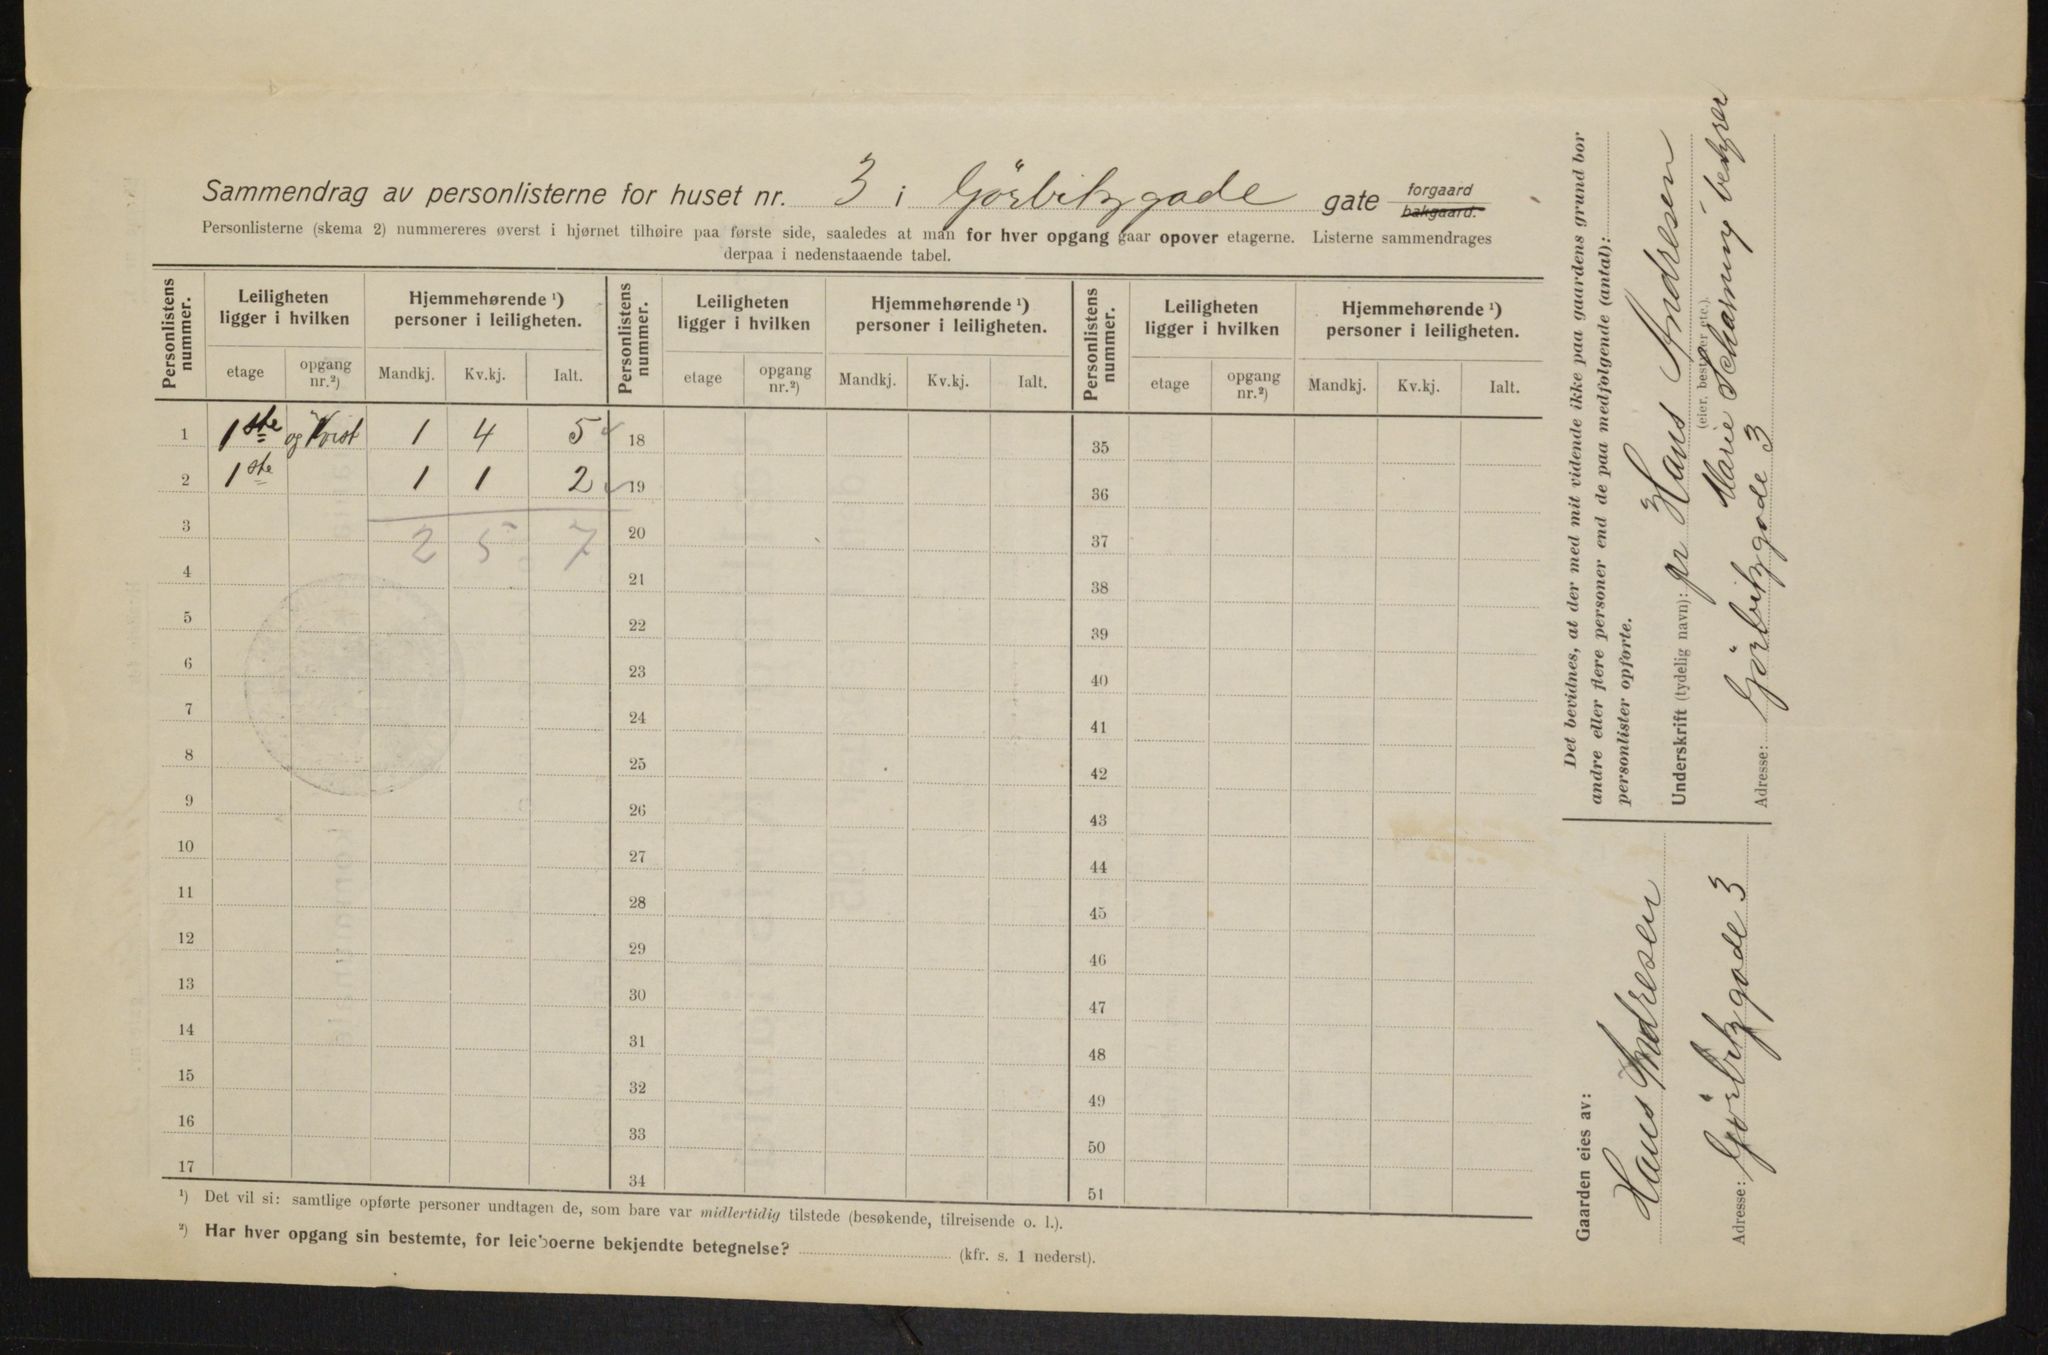 Sammendrag av personlisterne for huset nr. 3 i Görbitzgade gate forgaard bakgaard.
Personlisterne (skema 2) nummereres øverst i hjørnet tilhøire paa første side, saaledes at man for hver opgang gaar opover etagerne. Listerne sammendrages
derpaa i nedenstaaende tabel.
Personlistens nummer. Leiligheten ligger i hvilken Hjemmehørende ¹) personer i leiligheten. Personlistens nummer. Leiligheten ligger i hvilken Hjemmehørende ¹) personer i leiligheten. Personlistens nummer. Leiligheten ligger i hvilken Hjemmehørende ¹) personer i leiligheten.
etage opgang nr.²) Mandkj. Kv.kj. Ialt. etage opgang nr.²) Mandkj. Kv.kj. Ialt. etage opgang nr.²) Mandkj. Kv.kj. Ialt.
1 1ste og Kvist 1 4 5 18 35
2 1ste 1 1 2 19 36
3 2 5 7 20 37
4 21 38
5 22 39
6 23 40
7 24 41
8 25 42
9 26 43
10 27 44
11 28 45
12 29 46
13 30 47
14 31 48
15 32 49
16 33 50
17 34 51
¹) Det vil si: samtlige opførte personer undtagen de, som bare var midlertidig tilstede (besøkende, tilreisende o. l.).
²) Har hver opgang sin bestemte, for leieboerne bekjendte betegnelse? (kfr. s. 1 nederst).
Det bevidnes, at der med mit vidende ikke paa gaardens grund bor
andre eller flere personer end de paa medfølgende (antal):
personlister opførte.
Underskrift (tydelig navn): pr Hans Andresen
(eier, bestyrer etc.).
Marie Scharning bestyrer
Adresse: Görbitzgade 3
Gaarden eies av:
Hans Andresen
Adresse: Görbitzgade 3